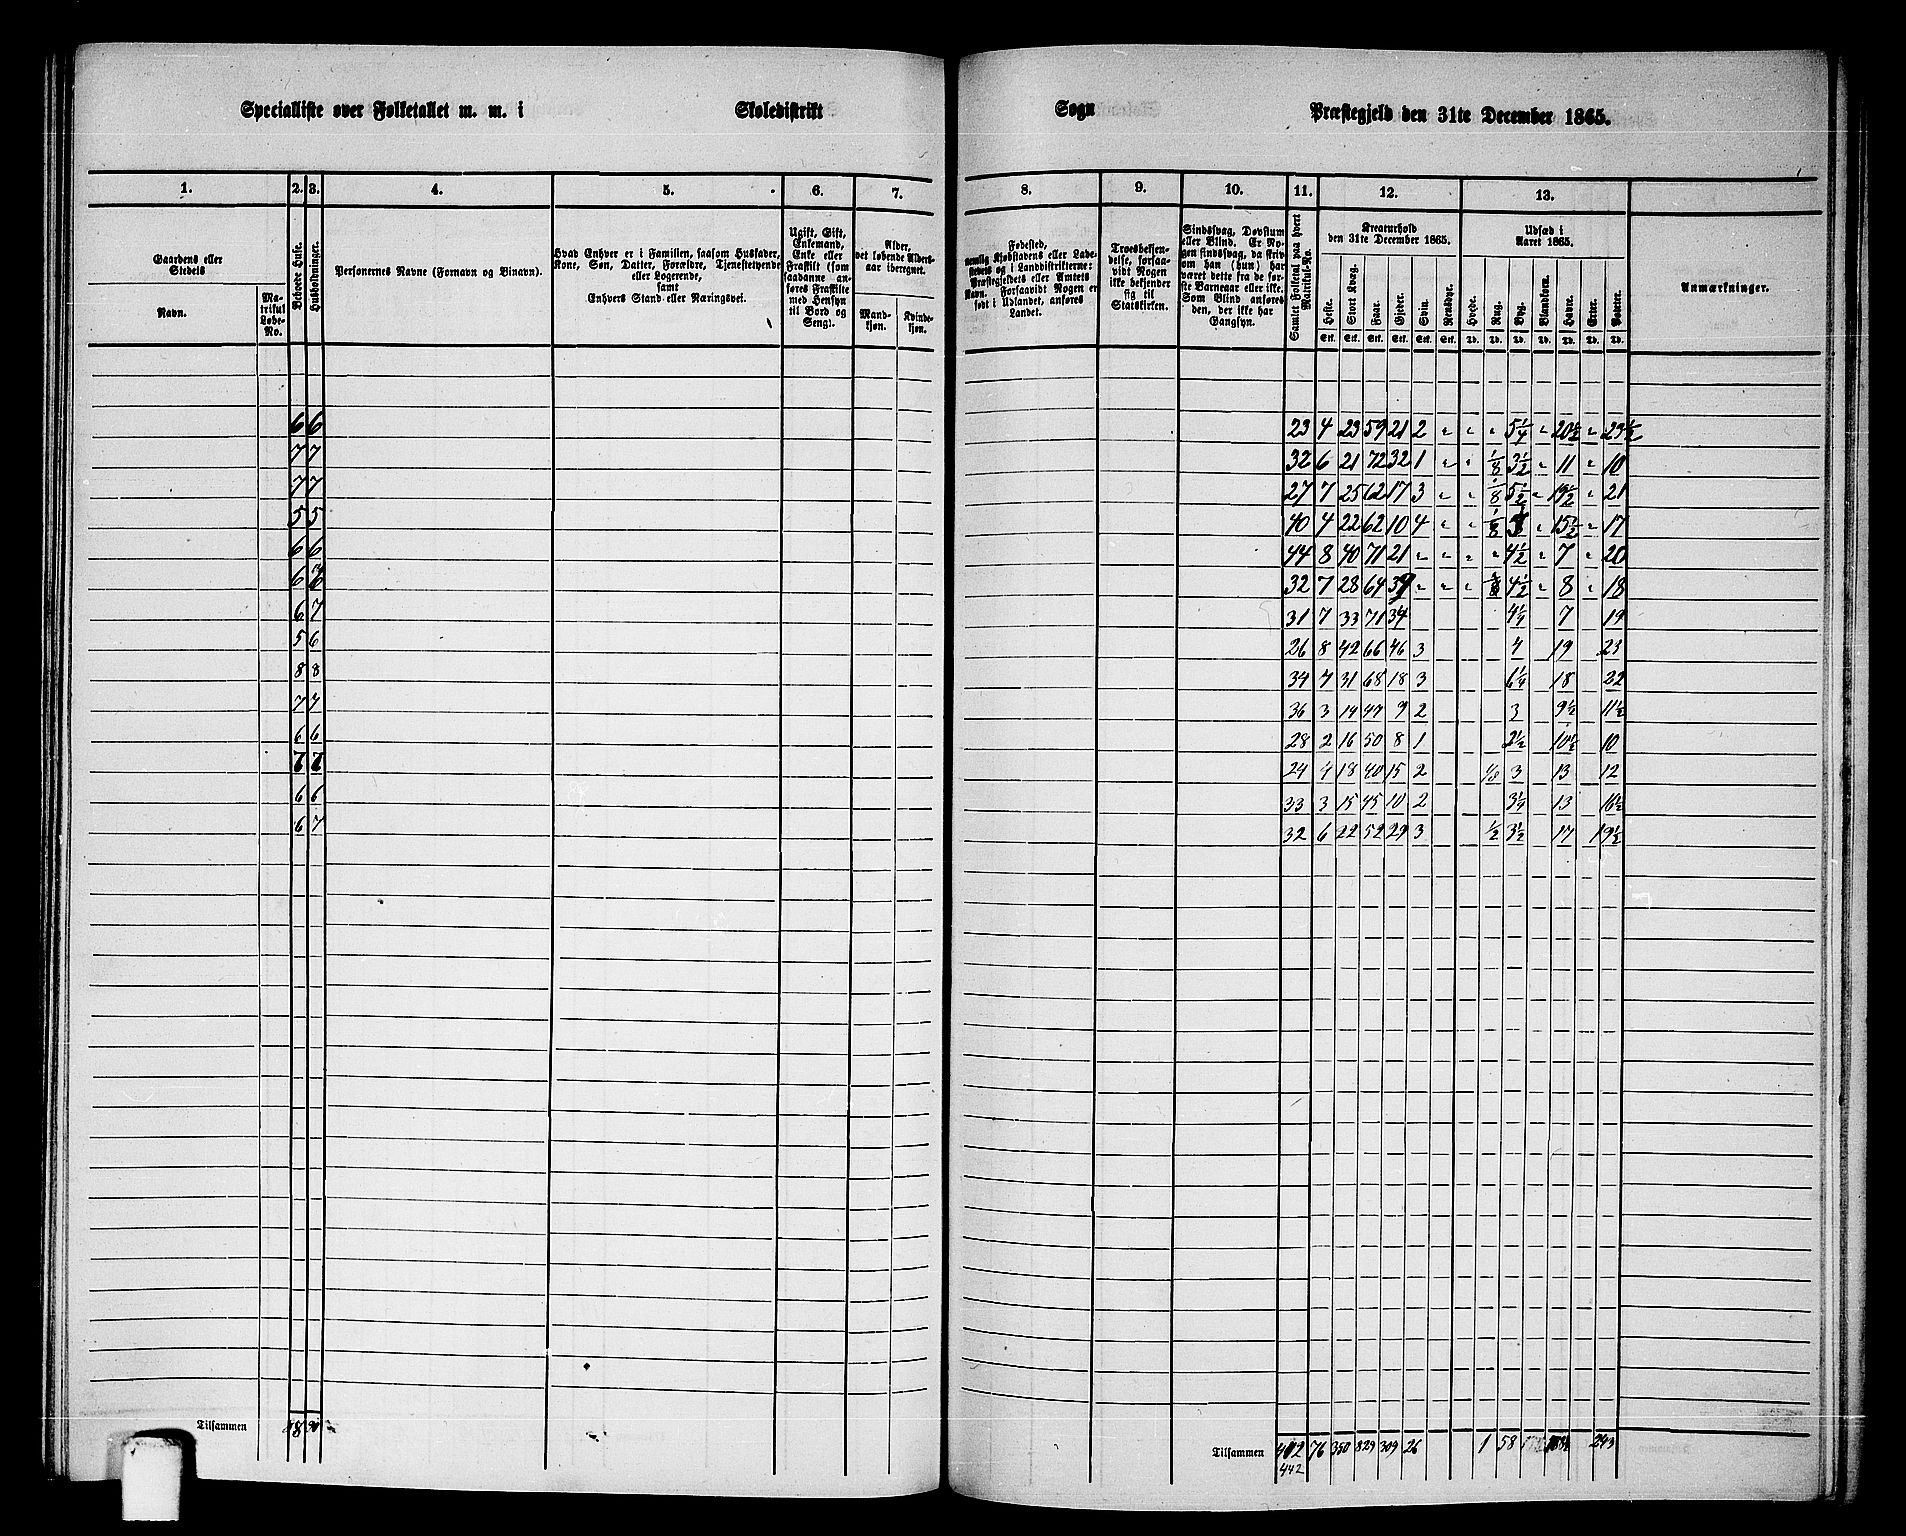 Specialliste over Folketallet m. m. i Skoledistrikt Sogn Præstegjeld den 31te December 1865.
1. 2. 3. 4. 5. 6. 7. 8. 9. 10. 11. 12. 13.
Gaardens eller Stedets
Navn.
Matrikul Løbe-No.
Beboede Huse.
Husholdninger.
Personernes Navne (Fornavn og Binavn).
Hvad Enhver er i Familien, saasom Husfader,
Kone, Søn, Datter, Forældre, Tjenestetyende
eller Logerende,
samt
Enhvers Stand eller Næringsvei.
Ugift, Gift,
Enkemand,
Enke eller
Fraskilt (som
saadanne an-
føres Fraskilte
med Hensyn
til Bord og
Seng).
Alder,
det løbende Alders-
aar iberegnet.
Mand-
kjøn.
Kvinde-
kjøn.
Fødested,
nemlig Kjøbstadens eller Lade-
stedets og i Landdistrikterne:
Præstegjeldets eller Amtets
Navn. Forsaavidt Nogen er
født i Udlandet, anføres
Landet.
Troesbekjen-
delse, forsaa-
vidt Nogen
ikke bekjender
sig til
Statskirken.
Sindssvag, Døvstum
eller Blind. Er No-
gen sindssvag, da skriv
om han (hun) har
været dette fra de før-
ste Barneaar eller ikke.
Som Blind anføres
den, der ikke har
Gangsyn.
Samlet Folketal paa hvert Matrikul-No.
Kreaturhold
den 31te December 1865.
Heste. Stort Kvæg. Faar. Gjeder. Sviin. Rensdyr.
Stk. Stk. Stk. Stk. Stk. Stk.
Udsæd i
Aaret 1865.
Hvede. Rug. Byg. Blandkorn. Havre. Erter. Poteter.
Td. Td. Td. Td. Td. Td. Td.
Anmærkninger.
6 6 23 4 23 59 21 2 " " " 5¼ " 20½ " 23½
7 7 32 6 21 72 32 1 " " ⅛ 3½ " 11 " 10
7 7 27 7 25 62 17 3 " " ⅛ 5½ " 19½ " 21
5 5 40 4 22 62 10 4 " " ⅛ " 15½ " 17
6 6 44 8 40 71 21 " " " " 4½ " 7 " 20
6 32 7 28 64 " " " 4½ " 8 " 18
6 7 31 7 33 71 34 4¼ 7 19
5 6 26 8 42 66 46 3 4 19 23
8 8 34 7 31 68 18 3 6¼ 18 22
7 7 36 3 14 47 9 2 3 9½ 11½
6 6 28 2 16 50 8 1 2½ 10½ 10
7 7 24 4 18 40 15 2 ⅛ 3 13 12
6 6 33 3 15 45 10 2 3¼ 13 16½
6 7 32 6 22 52 29 3 ½ 3½ 17 19½
Tilsammen 88 90 Tilsammen 76 350 829 309 26 1 58 243
442